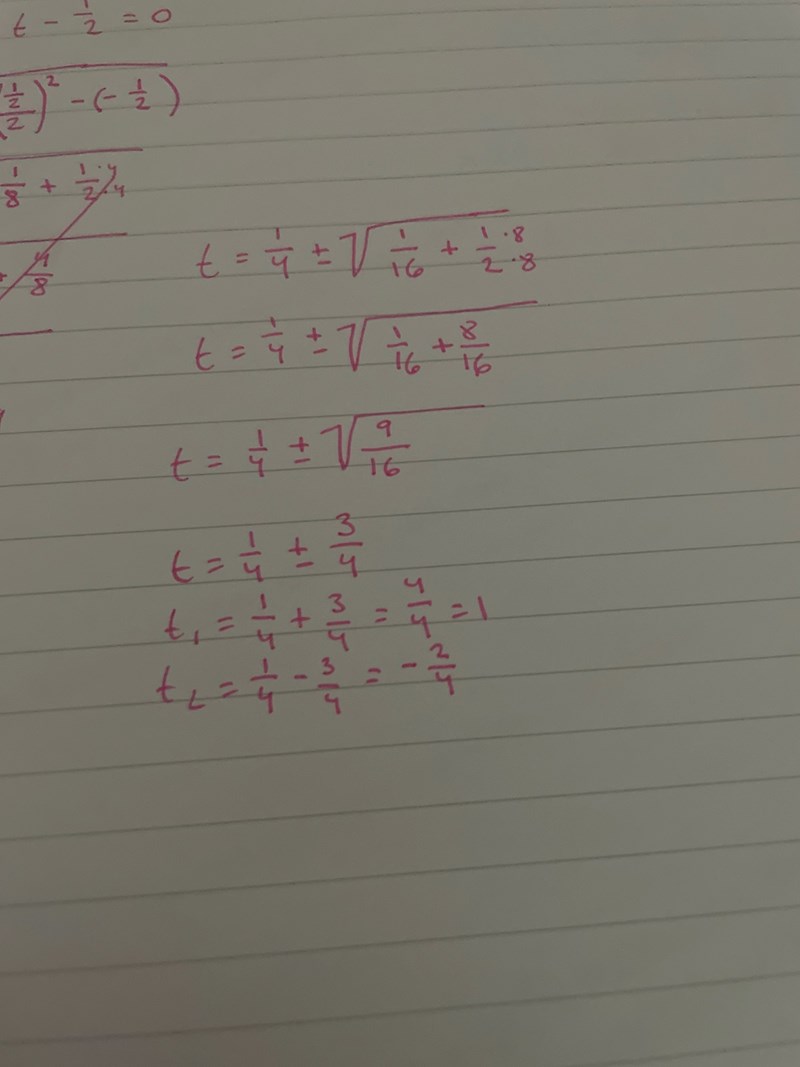 t - 1/2 = 0
(1/2/2)² - (- 1/2)
1/8 + 1·4/2·4
4/8
t = 1/4 ± √(1/16 + 1·8/2·8)
t = 1/4 ± √(1/16 + 8/16)
t = 1/4 ± √(9/16)
t = 1/4 ± 3/4
t₁ = 1/4 + 3/4 = 4/4 = 1
t₂ = 1/4 - 3/4 = - 2/4